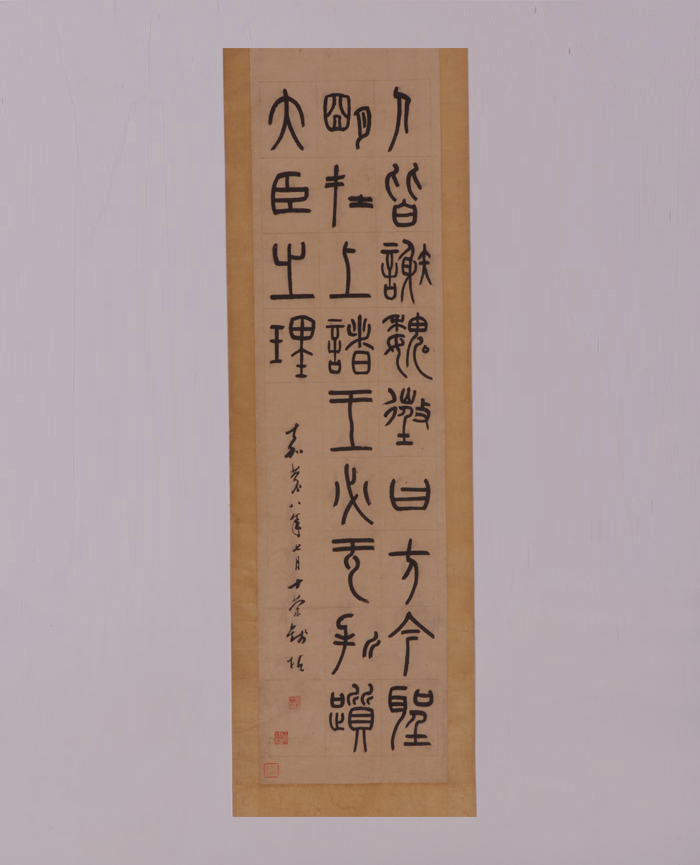 人皆謝魏徵曰方今聖
明在上諸王必无躓
大臣之理
嘉慶八年七月十蘭錢坫